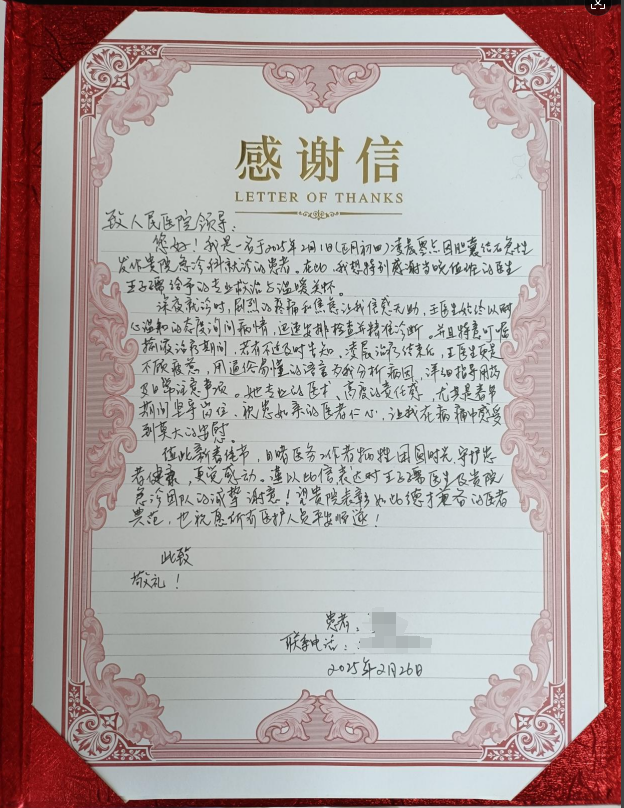 感谢信
LETTER OF THANKS
致人民医院领导:
您好!我是一名于2025年2月1日(正月初四)凌晨零点因胆囊结石急性
发作贵院急诊科就诊的患者。在此,我想特别感谢当晚值班的医生
王子 给予的专业救治与温暖关怀。
深夜就诊时,剧烈的疼痛和焦急让我倍感无助,王医生始终以耐
心温和的态度询问病情,迅速安排检查并精准诊断。并且特意叮嘱
输液治疗期间,若有不适及时告知,凌晨治疗结束后,王医生更是
不顾疲惫,用通俗易懂的语言为我分析病因,详细指导用药
及日常注意事项。她专业的医术、高度的责任感,尤其是春节
期间坚守岗位、视患如亲的医者仁心,让我在病痛中感受
到莫大的安慰。
值此新春佳节,目睹医务工作者牺牲团圆时光,守护患
者健康,更觉感动。谨以此信表达对王子 医生及贵院
急诊团队的诚挚谢意!望贵院表彰如此德才兼备的医者
典范,也祝愿所有医护人员平安顺遂!
此致
敬礼!
患者:
联系电话:
2025年2月26日